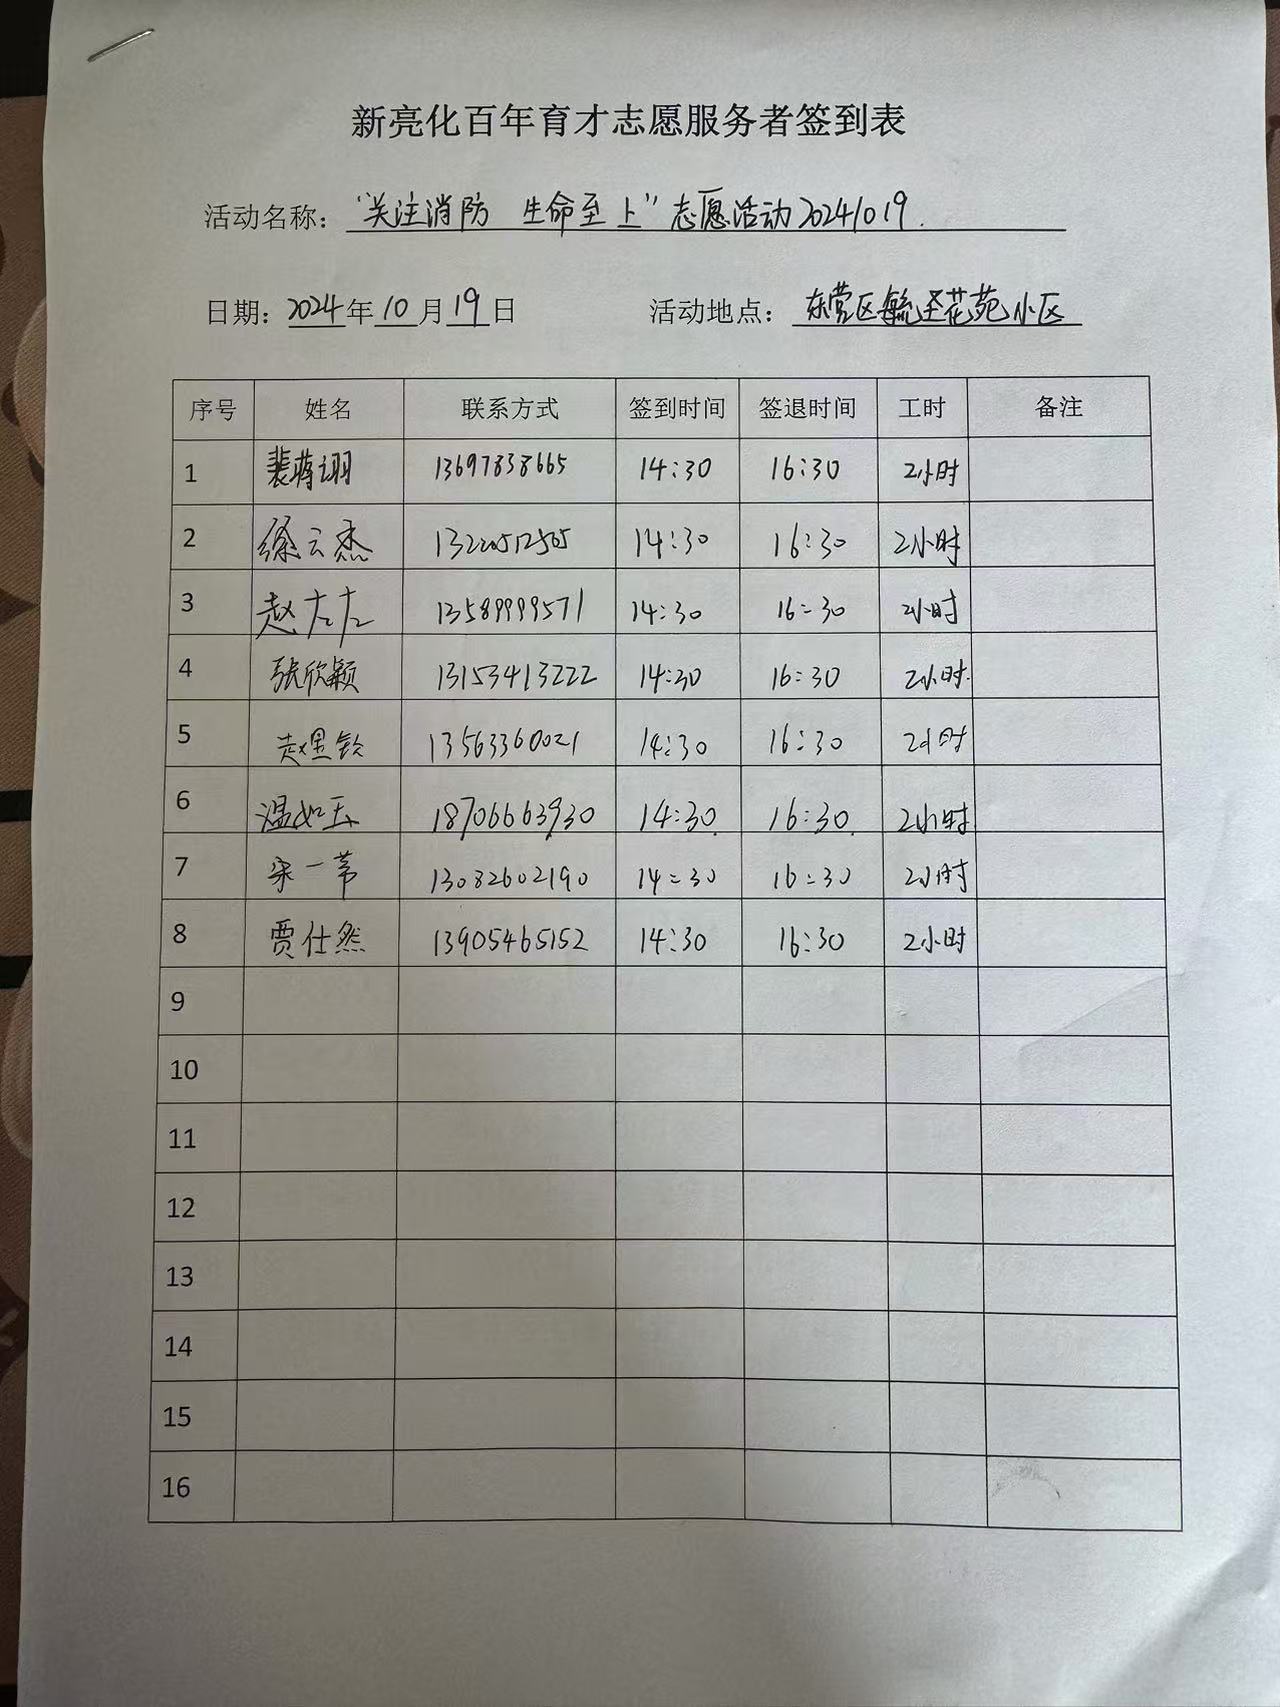 新亮化百年育才志愿服务者签到表
活动名称："关注消防 生命至上"志愿活动20241019.
日期：2024年10月19日 活动地点：东营区毓圣花苑小区
序号 姓名 联系方式 签到时间 签退时间 工时 备注
1 裴蒋诩 13697838665 14:30 16:30 2小时
2 徐云杰 13220512505 14:30 16:30 2小时
3 赵左左 13589999571 14:30 16:30 2小时
4 张欣颖 13153413222 14:30 16:30 2小时.
5 赵星钦 13563360021 14:30 16:30 2小时
6 温如玉 18706663930 14:30. 16:30. 2小时
7 宋一苇 13082602190 14:30 16:30 2小时
8 贾仕然 13905465152 14:30 16:30 2小时
9
10
11
12
13
14
15
16